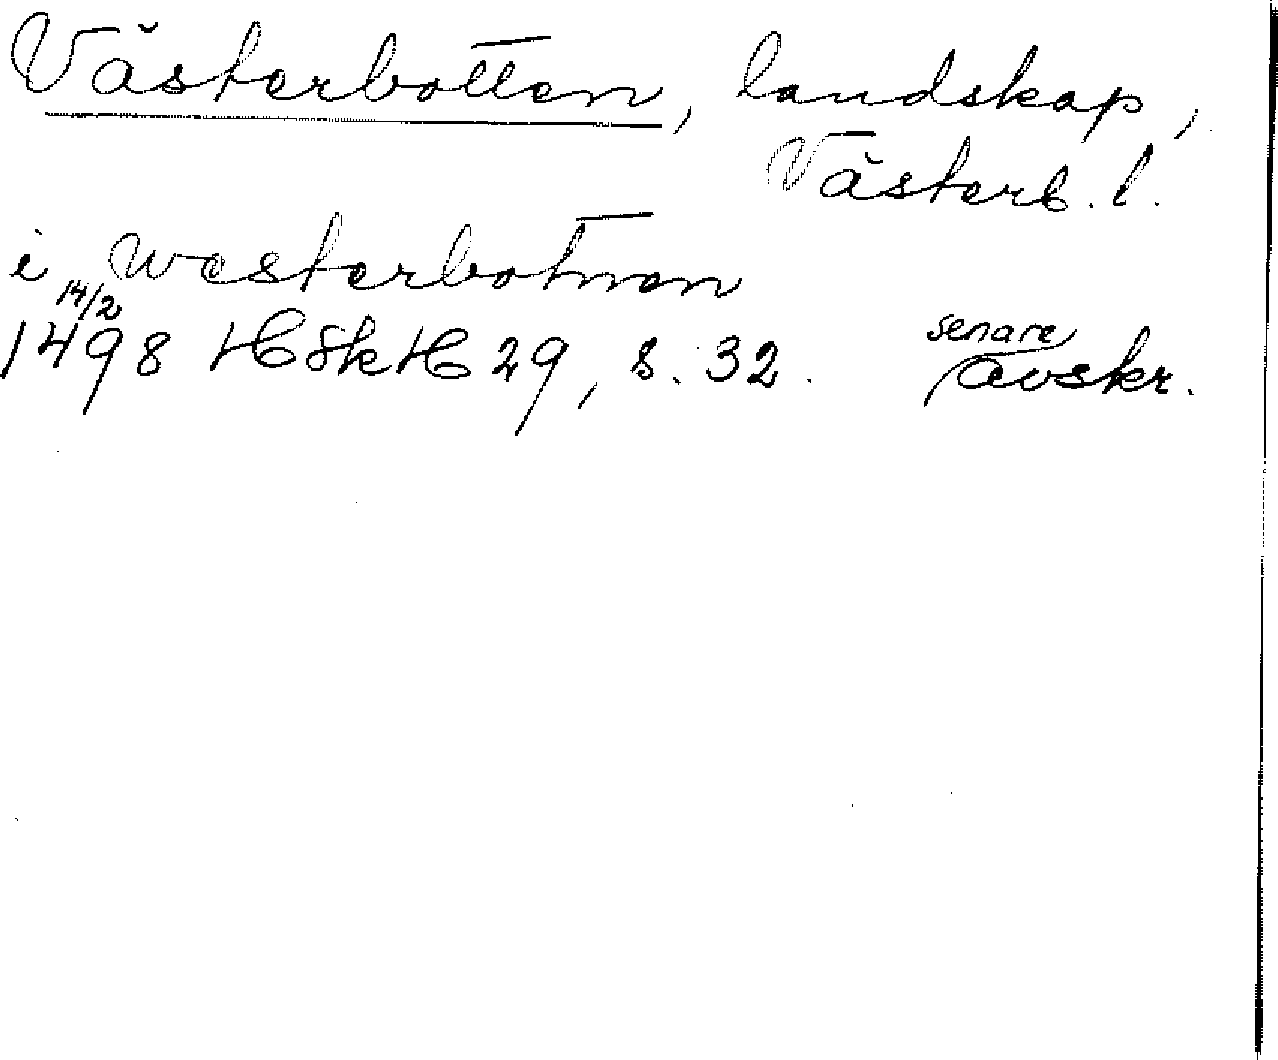 Västerbotten, landskap,
Västerb. l.
i Westerbotnen
14/2
1498 HSkH 29, s. 32. senare avskr.